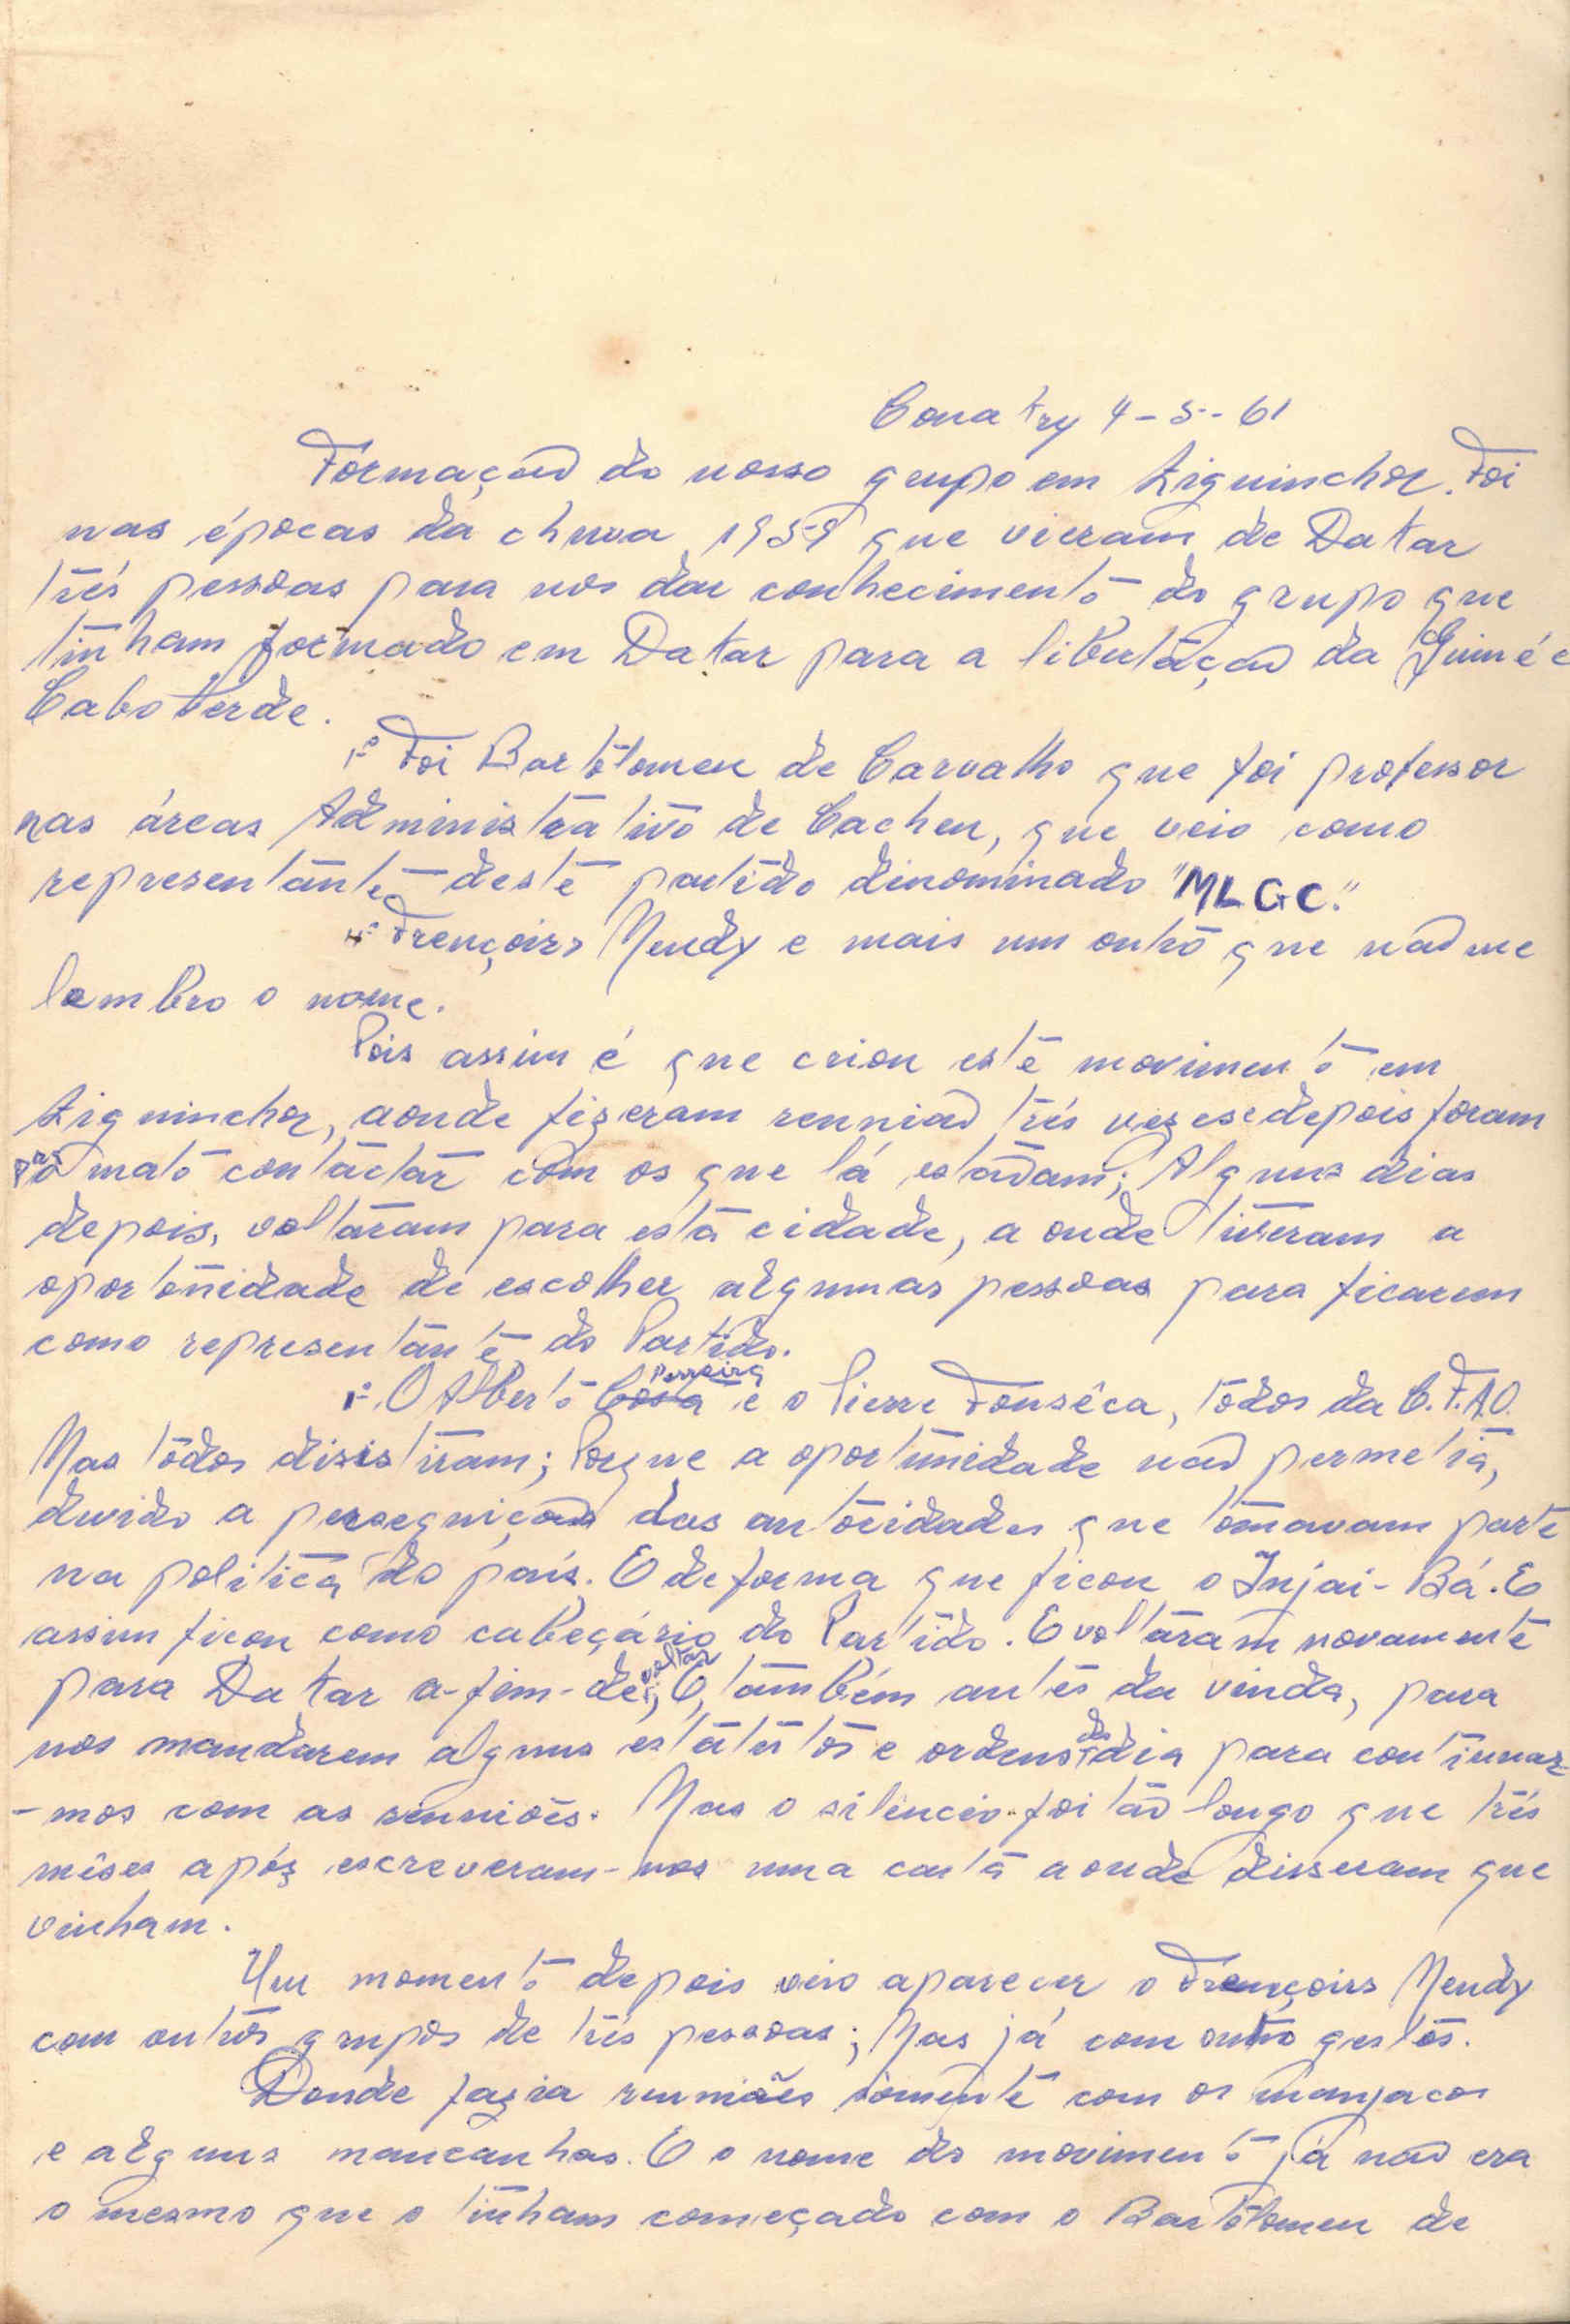 Conakry 4-5-61
Formação do nosso grupo em Ziguinchor. Foi
nas épocas da chuva 1959 que vieram de Dakar
três pessoas para nos dar conhecimento do grupo que
tinham formado em Dakar para a libertação da Guiné e
Cabo Verde.
1º Foi Bartolomeu de Carvalho que foi professor
nas áreas Administrativo de Cacheu, que veio como
representante deste partido dinominado "MLGC."
Frençoirs Mendy e mais um outro que não me
lembro o nome.
Pois assim é que criou este movimento em
Ziguinchor, aonde fizeram reunião três vezes e depois foram
para mato contactar com os que lá estavam; Alguns dias
depois, voltaram para esta cidade, a onde tiveram a
oportunidade de escolher algumas pessoas para ficarem
como representante do Partido.
1º O Alberto Perreira e o Pierre Fonsêca, todos da C.F.A.O.
Mas todos disistiram; Porque a oportunidade não permetia,
devido a perseguição das autoridades que tomavam parte
na politica do país. E de forma que ficou o Injai-Bá. E
assim ficou como cabeçário do Partido. E voltaram novamente
para Dakar a-fim-de voltar; E também antes da vinda, para
nos mandarem alguns estatutos e ordens do dia para continuar-
-mos com as reuniões. Mas o silêncio foi tão longo que três
mêses após escreveram-nos uma carta aonde disseram que
vinham.
Um momento depois veio aparecer o Frençoirs Mendy
com outros grupos de três pessoas; Mas já com outro gestos.
Donde fazia reuniões sómente com os manjacos
e alguns mancanhas. E o nome do movimento já não era
o mesmo que o tinham começado com o Bartolomeu de